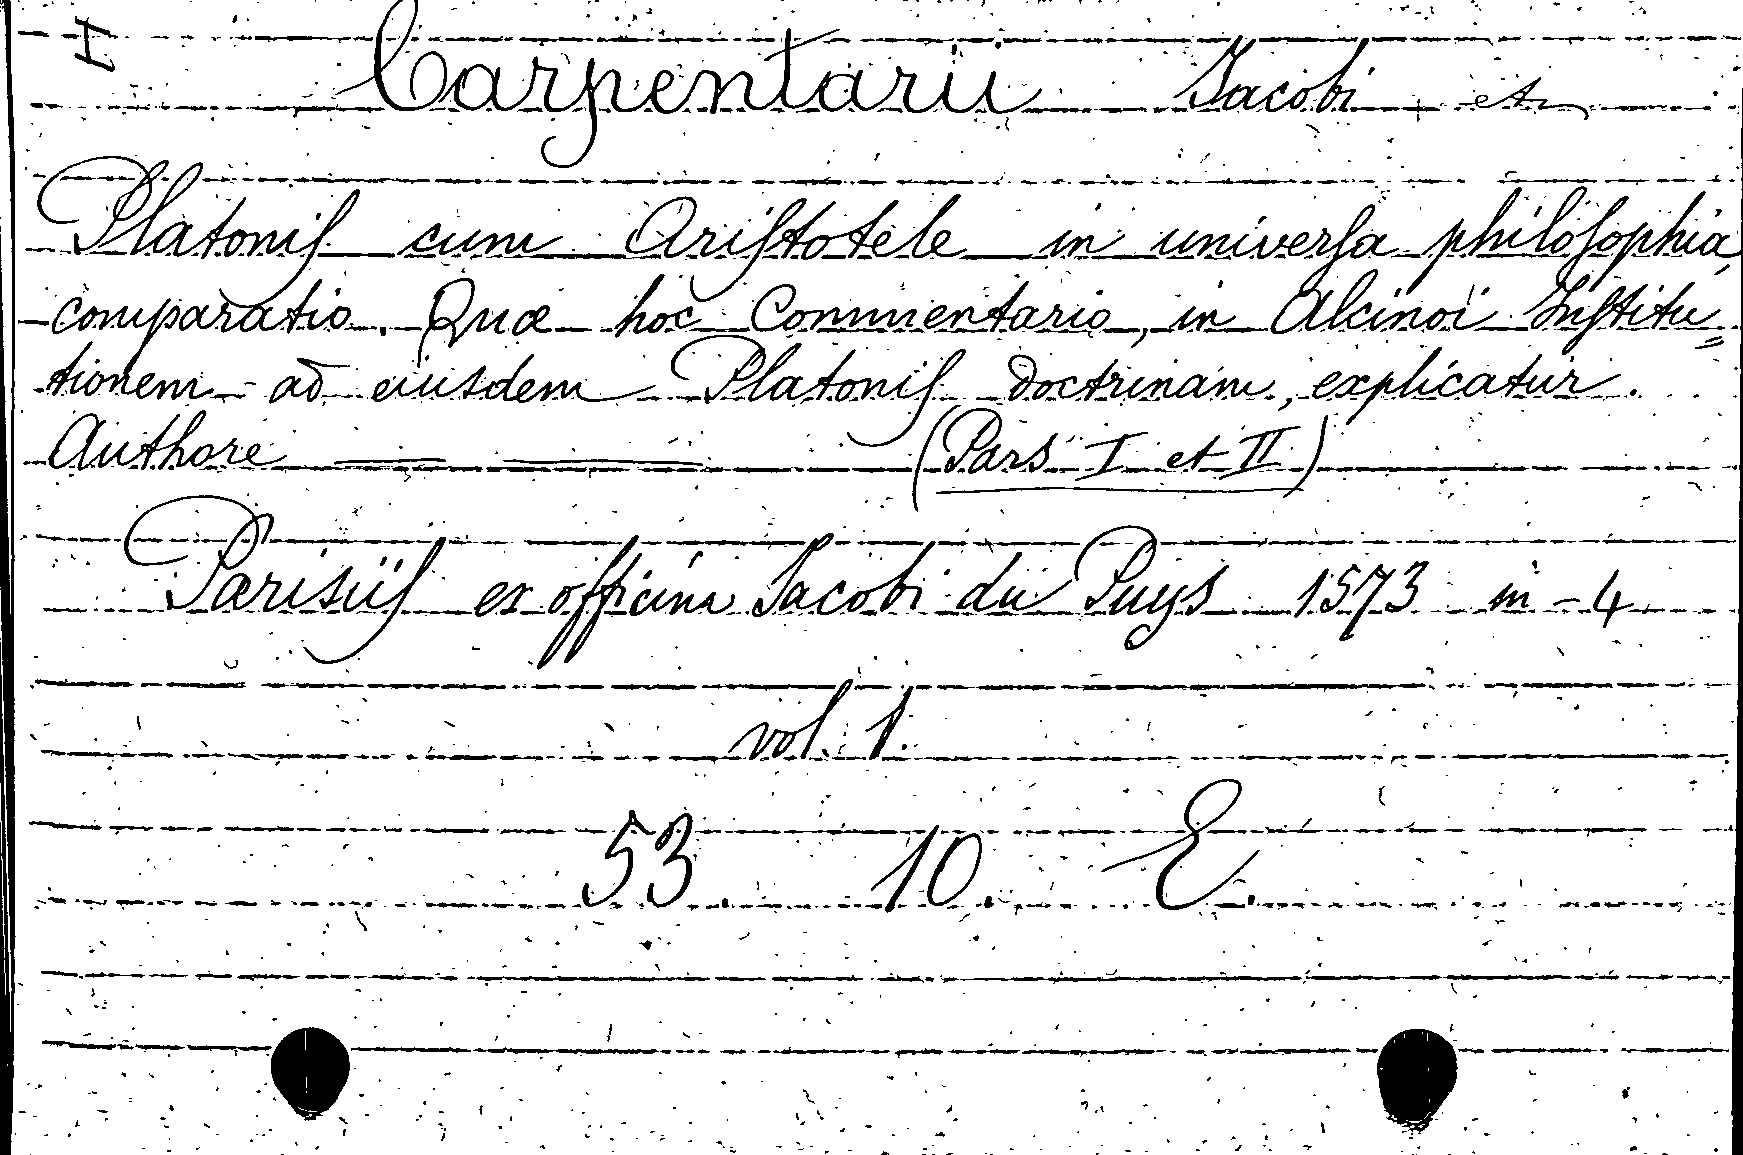 I
Carpentarii Jacobi
Platoniſ cum Ariſtotele in univerſa philoſophia,
comparatio. Quæ hoc Commentario, in Alcinoi Inſtitu=
tionem ad eiusdem Platoniſ doctrinam, explicatur.
Authore —— —— (Pars I et II)
Parisiiſ ex officina Jacobi du Puys 1573 in-4
vol. 1.
53. 10. E.